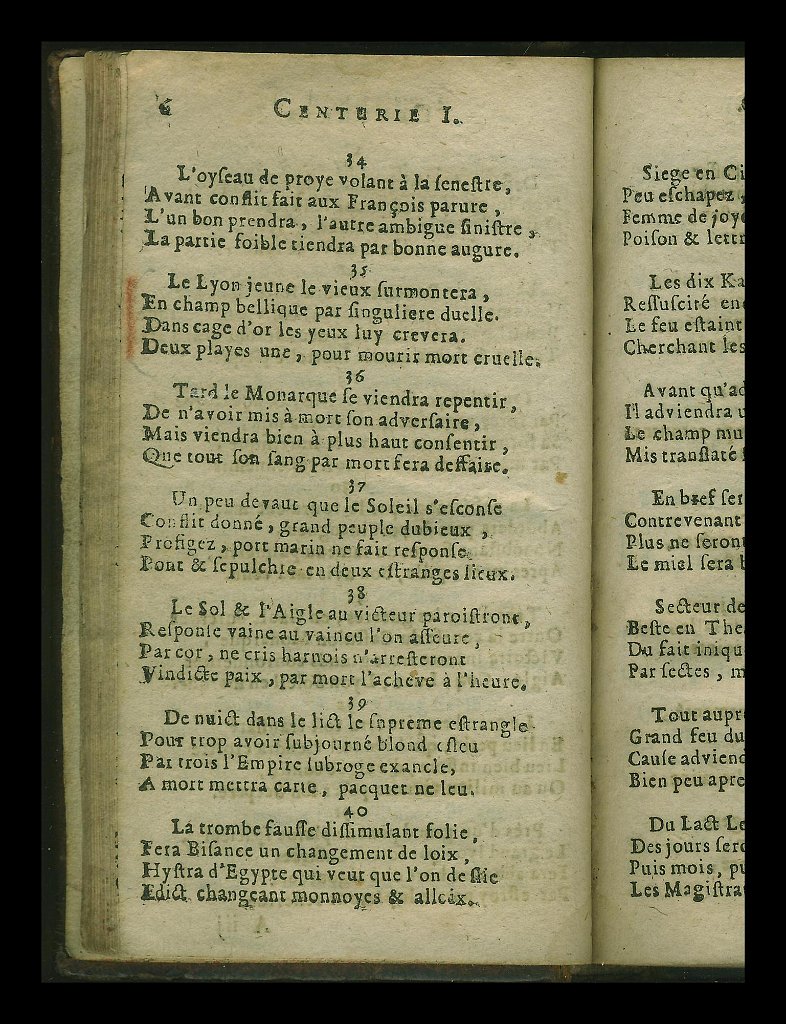 6 CENTURIE I.
34
L'oyſeau de proye volant à la feneſtre,
Avant conflit fait aux François parure,
L'un bon prendra, l'autre ambigue ſiniſtre,
La partie foible tiendra par bonne augure.
35
Le Lyon jeune le vieux ſurmontera,
En champ bellique par ſinguliere duelle.
Dans cage d'or les yeux luy crevera.
Deux playes une, pour mourir mort cruelle.
36
Tard le Monarque ſe viendra repentir,
De n'avoir mis à mort ſon adverſaire,
Mais viendra bien à plus haut conſentir,
Que tout ſon ſang par mort fera deffaire.
37
Un peu devant que le Soleil s'eſconſe
Conflit donné, grand peuple dubieux,
Profigez, port marin ne fait reſponſe.
Pont & ſepulchre en deux eſtranges lieux.
38
Le Sol & l'Aigle au victeur paroiſtront,
Reſponſe vaine au vaincu l'on aſſeure,
Par cor, ne cris harnois n'arreſteront
Vindicte paix, par mort l'acheve à l'heure.
39
De nuict dans le lict le ſupreme eſtrangle
Pour trop avoir ſubjourné blond eſleu
Par trois l'Empire ſubroge exancle,
A mort mettra carte, pacquet ne leu.
40
La trombe fauſſe diſſimulant folie,
Fera Biſance un changement de loix,
Hyſtra d'Egypte qui veut que l'on deſlie
Edict changeant monnoyes & alloix.
Siege en Ci
Peu eſchapez,
Femme de joye
Poiſon & lettr
Les dix Ka
Reſſuſcité en
Le feu eſtaint
Cherchant les
Avant qu'ad
Il adviendra u
Le champ mu
Mis tranſlaté
En bref ſer
Contrevenant
Plus ne ſeront
Le miel ſera b
Secteur de
Beſte en The
Du fait iniqu
Par ſectes, m
Tout aupr
Grand feu du
Cauſe adviend
Bien peu apre
Du Lact Le
Des jours ſero
Puis mois, pu
Les Magiſtra